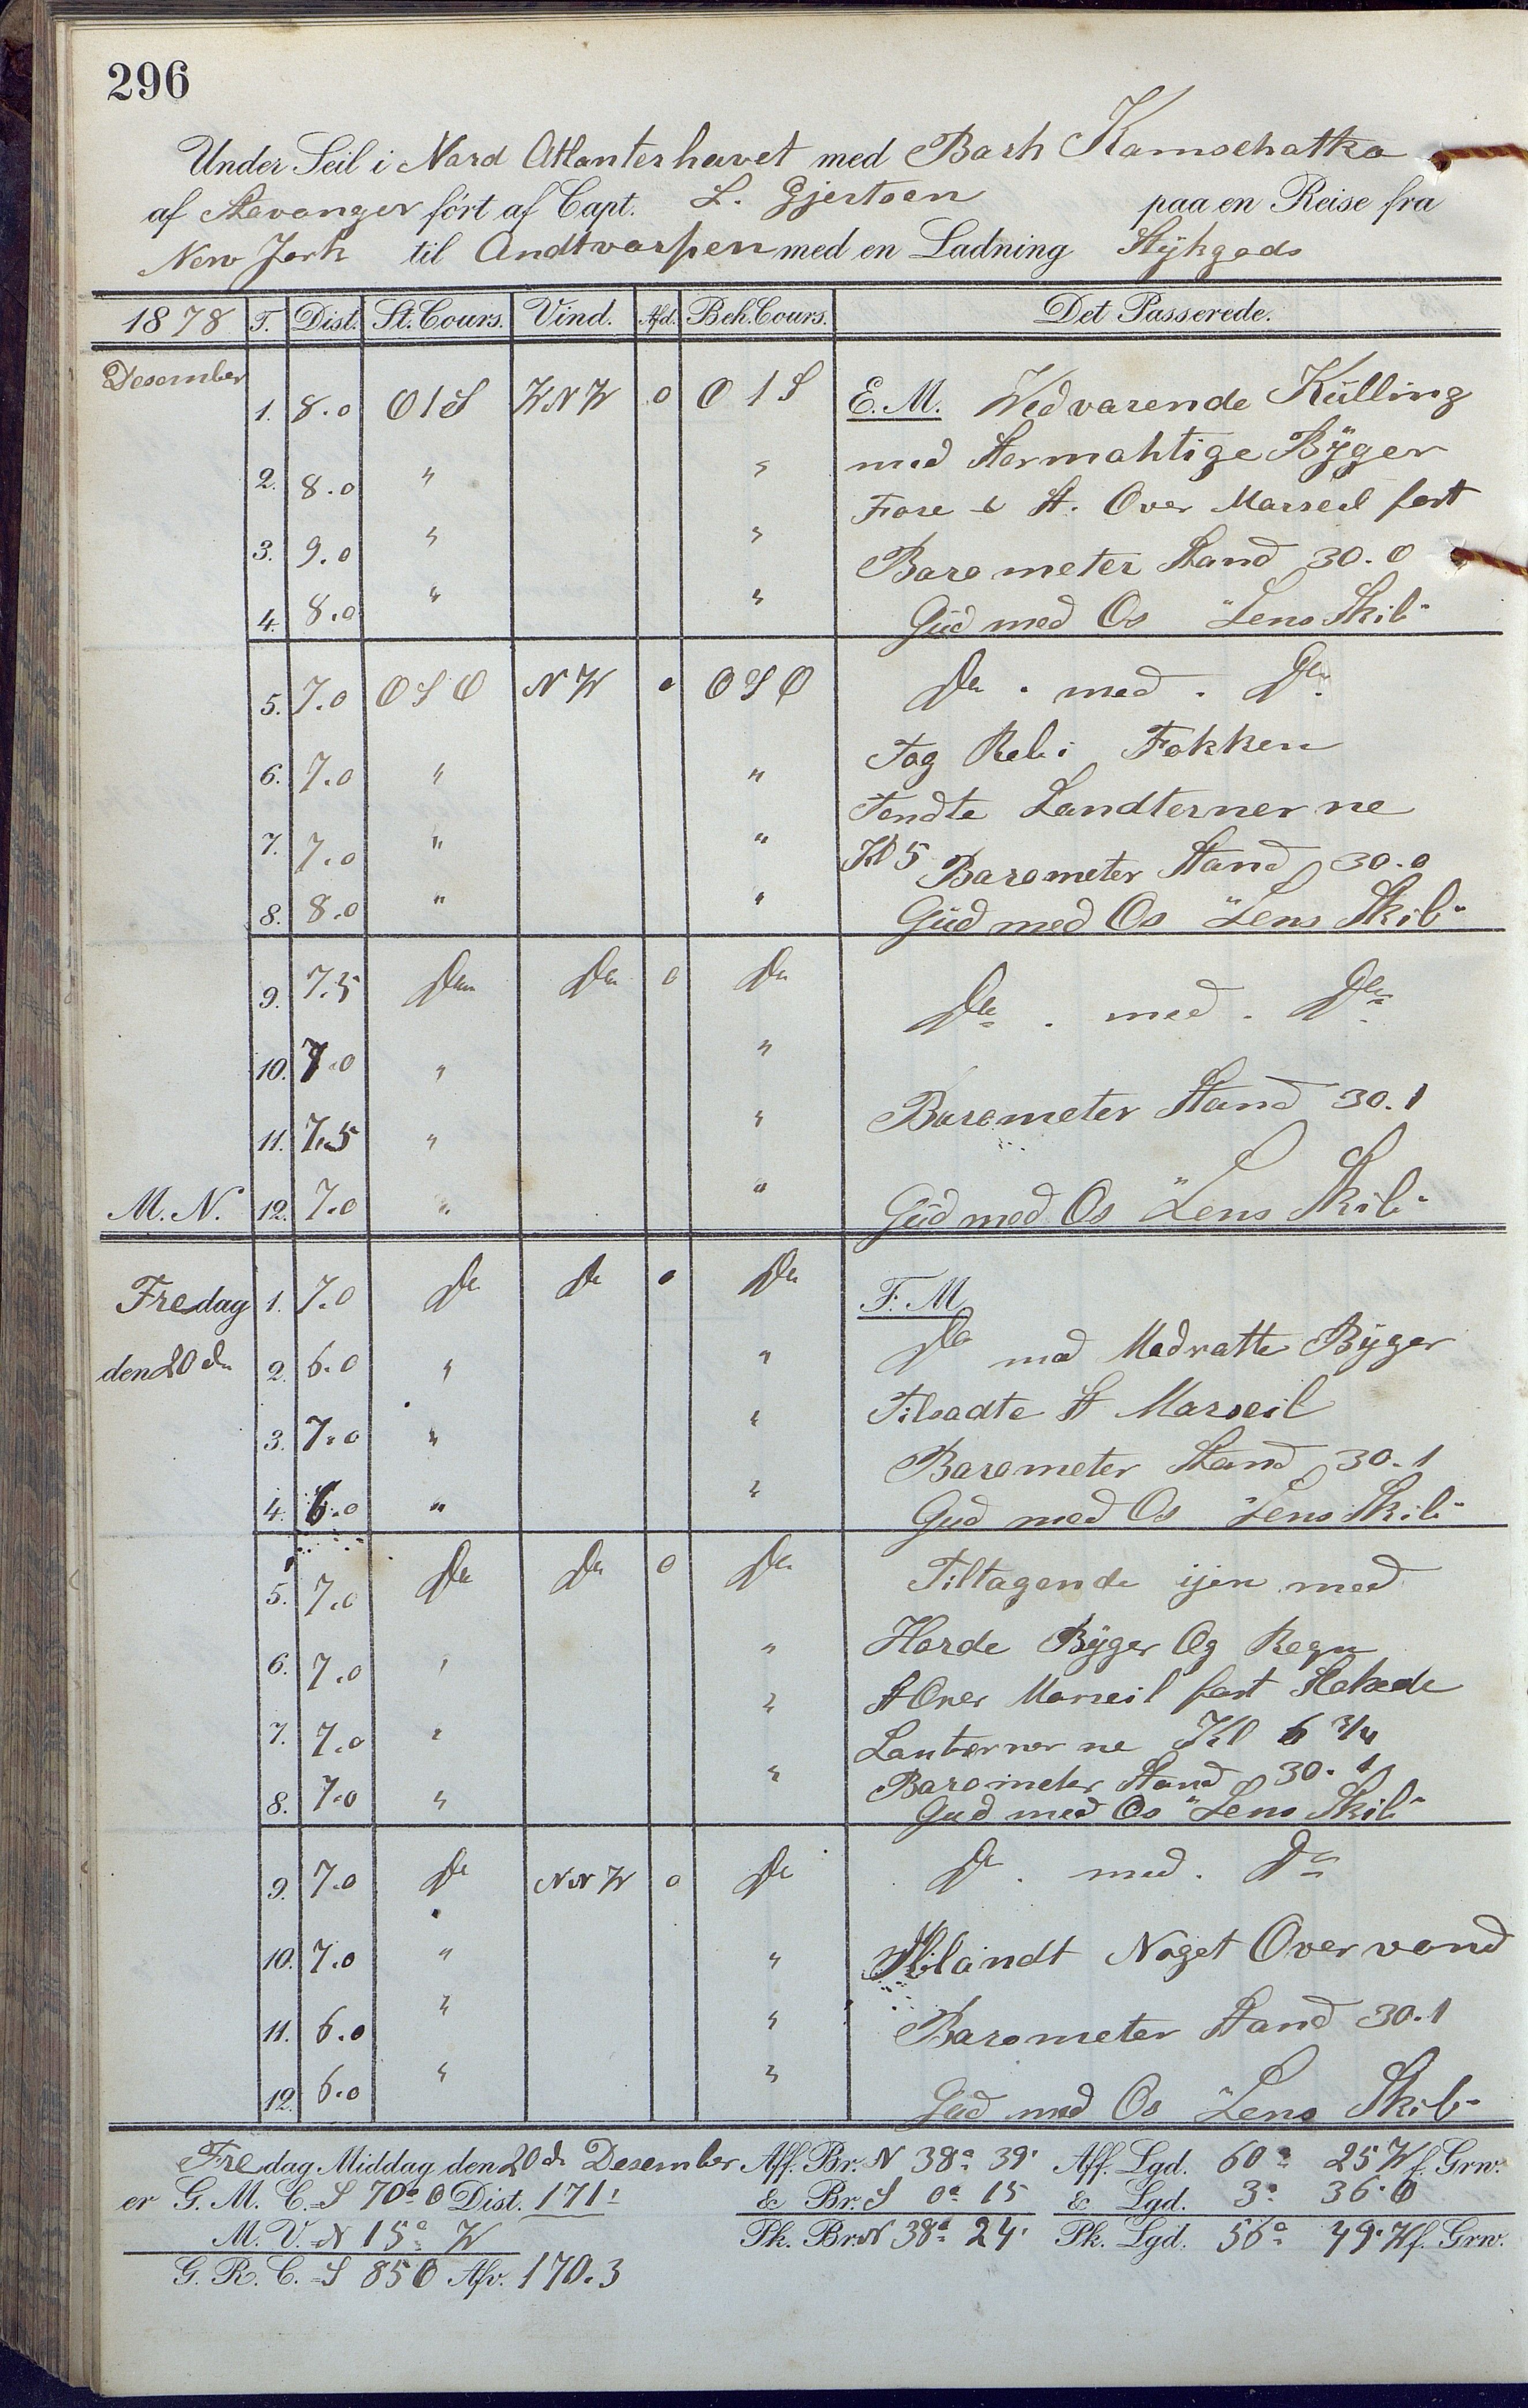 296
Under Seil i Nord Atlanterhavet med Bark Kamschatka
af Stavanger fört af Capt. L. Gjertsen paa en Reise fra
New York til Andtvarpen med en Ladning Stykgods
1878 T. Dist. St. Cours. Vind. Afd. Beh. Cours. Det Passerede.
Desember
1. 8.0 O 1 S WNW 0 O 1 S E.M. Vedvarende Külling
2. 8.0 " " med Stormahtige Byger
Fore & St. Over Marseil fast
3. 9.0 " " Barometer Stand 30.0
4. 8.0 " " Gud med Os "Lens Skib"
5. 7.0 OSO NW 0 OSO Do . med . Do
6. 7.0 " " Tog Reb i Fokken
Tendte Landternerne
7. 7.0 " " Kl 5 Barometer Stand 30.0
8. 8.0 " " Gud med Os "Lens Skib"
9. 7.5 Do Do 0 Do Do . med . Do
10. 7.0 " "
11. 7.5 " " Barometer Stand 30.1
M.N. 12. 7.0 " " Gud med Os "Lens Skib"
Fredag 1. 7.0 Do Do 0 Do F.M.
den 20de 2. 6.0 " " Do med Modratte Byger
3. 7.0 " " Tilsadte St Marseil
Barometer Stand 30.1
4. 6.0 " " Gud med Os "Lens Skib"
5. 7.0 Do Do 0 Do Tiltagende ijen med
6. 7.0 " " Harde Byger Og Regn
St Over Marseil fast Slekede
7. 7.0 " " Lanternerne Kl 6 3/4
Barometer Stand 30.1
8. 7.0 " " Gud med Os "Lens Skib"
9. 7.0 Do NNW 0 Do Do . med . Do
10. 7.0 " " Iblandt Noget Overvand
11. 6.0 " " Barometer Stand 30.1
12. 6.0 " " Gud med Os "Lens Skib"
Fredag Middag den 20de Desember Aff. Br. N 38° 39' Aff. Lgd. 60° 25 W f. Grw.
er G. M. C. = S 70° O Dist. 171' & Br. S 0° 15 & Lgd. 3° 36' O
M. V. = N 15° W Pk. Br. N 38° 24' Pk. Lgd. 56° 49' W f. Grw.
G. R. C. = S 85 O Afv. 170.3